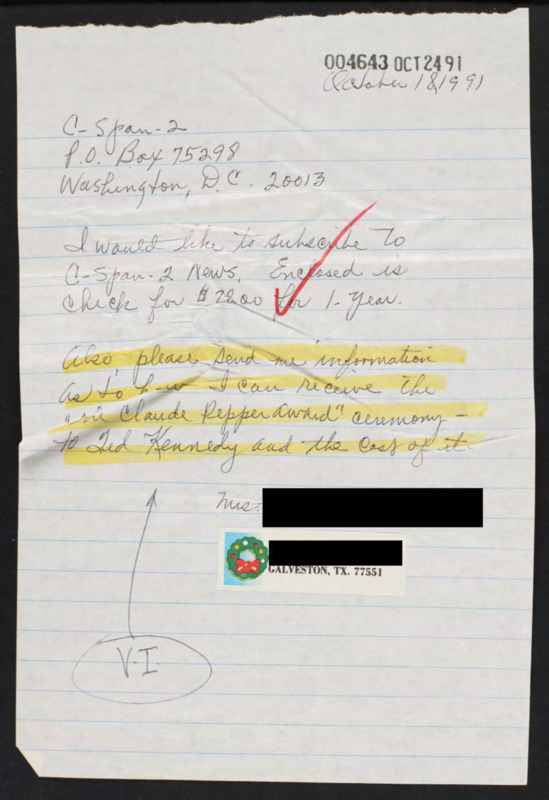 004643 OCT 24 91
October 18, 1991
C-Span-2
P.O. Box 75298
Washington, D.C. 20013
I would like to subscribe to
C-Span-2 News. Enclosed is
check for $ for 1-Year.
Also, please send me information
as to how I can receive the
Claude Pepper Award" ceremony -
to Ted Kennedy and the cost of it.
Mrs.
GALVESTON, TX. 77551
V.I.